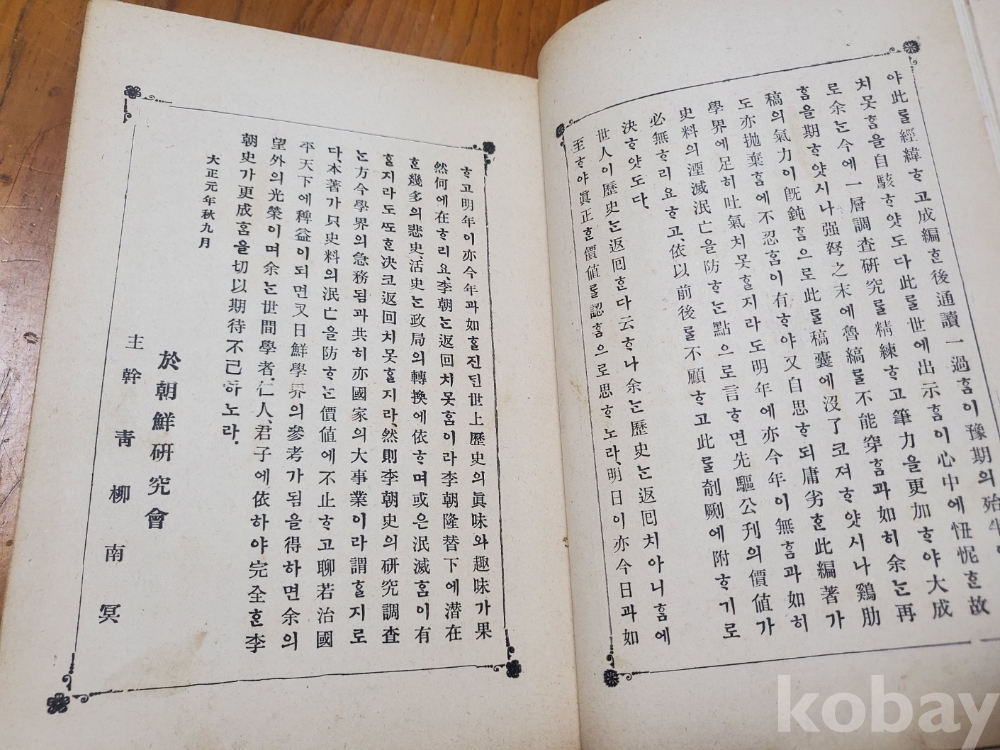 야此ᄅᆞᆯ經緯ᄒᆞ고成編ᄒᆞᆫ後通讀一過ᄒᆞᆷ이豫期의殆半
치못ᄒᆞᆷ을自駭ᄒᆞ얏도다此ᄅᆞᆯ世에出示ᄒᆞᆷ이心中에忸怩ᄒᆞᆫ故
로余ᄂᆞᆫ今에一層調査硏究ᄅᆞᆯ精練ᄒᆞ고筆力을更加ᄒᆞ야大成
ᄒᆞᆷ을期ᄒᆞ얏시나强弩之末에魯縞ᄅᆞᆯ不能穿ᄒᆞᆷ과如히余ᄂᆞᆫ再
稿의氣力이旣鈍ᄒᆞᆷ으로此ᄅᆞᆯ稿囊에沒了코져ᄒᆞ얏시나鷄肋
도亦拋棄ᄒᆞᆷ에不忍ᄒᆞᆷ이有ᄒᆞ야又自思ᄒᆞ되庸劣ᄒᆞᆫ此編著가
學界에足히吐氣치못ᄒᆞᆯ지라도明年에亦今年이無ᄒᆞᆷ과如히
史料의湮滅泯亡을防ᄒᆞᄂᆞᆫ點으로言ᄒᆞ면先驅公刊의價値가
必無ᄒᆞ리요ᄒᆞ고依以前後ᄅᆞᆯ不顧ᄒᆞ고此ᄅᆞᆯ剞劂에附ᄒᆞ기로
決ᄒᆞ얏도다.
世人이歷史ᄂᆞᆫ返回ᄒᆞᆫ다云ᄒᆞ나余ᄂᆞᆫ歷史ᄂᆞᆫ返回치아니ᄒᆞᆷ에
至ᄒᆞ야眞正ᄒᆞᆫ價値ᄅᆞᆯ認ᄒᆞᆷ으로思ᄒᆞ노라,明日이亦今日과如
ᄒᆞ고明年이亦今年과如ᄒᆞᆯ진ᄃᆡᆫ世上歷史의眞味와趣味가果
然何에在ᄒᆞ리요,李朝ᄂᆞᆫ返回치못ᄒᆞᆷ이라李朝隆替下에潜在
ᄒᆞᆫ幾多의悲史,活史ᄂᆞᆫ政局의轉換에依ᄒᆞ며或은泯滅ᄒᆞᆷ이有
ᄒᆞᆯ지라도ᄯᅩᄒᆞᆫ決코返回치못ᄒᆞᆯ지라,然則李朝史의硏究調査
ᄂᆞᆫ方今學界의急務됨과共히亦國家의大事業이라謂ᄒᆞᆯ지로
다,本著가只史料의泯亡을防ᄒᆞᄂᆞᆫ價値에不止ᄒᆞ고聊若治國
平天下에稗益이되면又日鮮學界의參考가됨을得하면余의
望外의光榮이며余ᄂᆞᆫ世間學者,仁人,君子에依하야完全ᄒᆞᆫ李
朝史가更成ᄒᆞᆷ을切以期待不己하노라.
大正元年秋九月
於朝鮮硏究會
主幹靑柳南冥
kobay